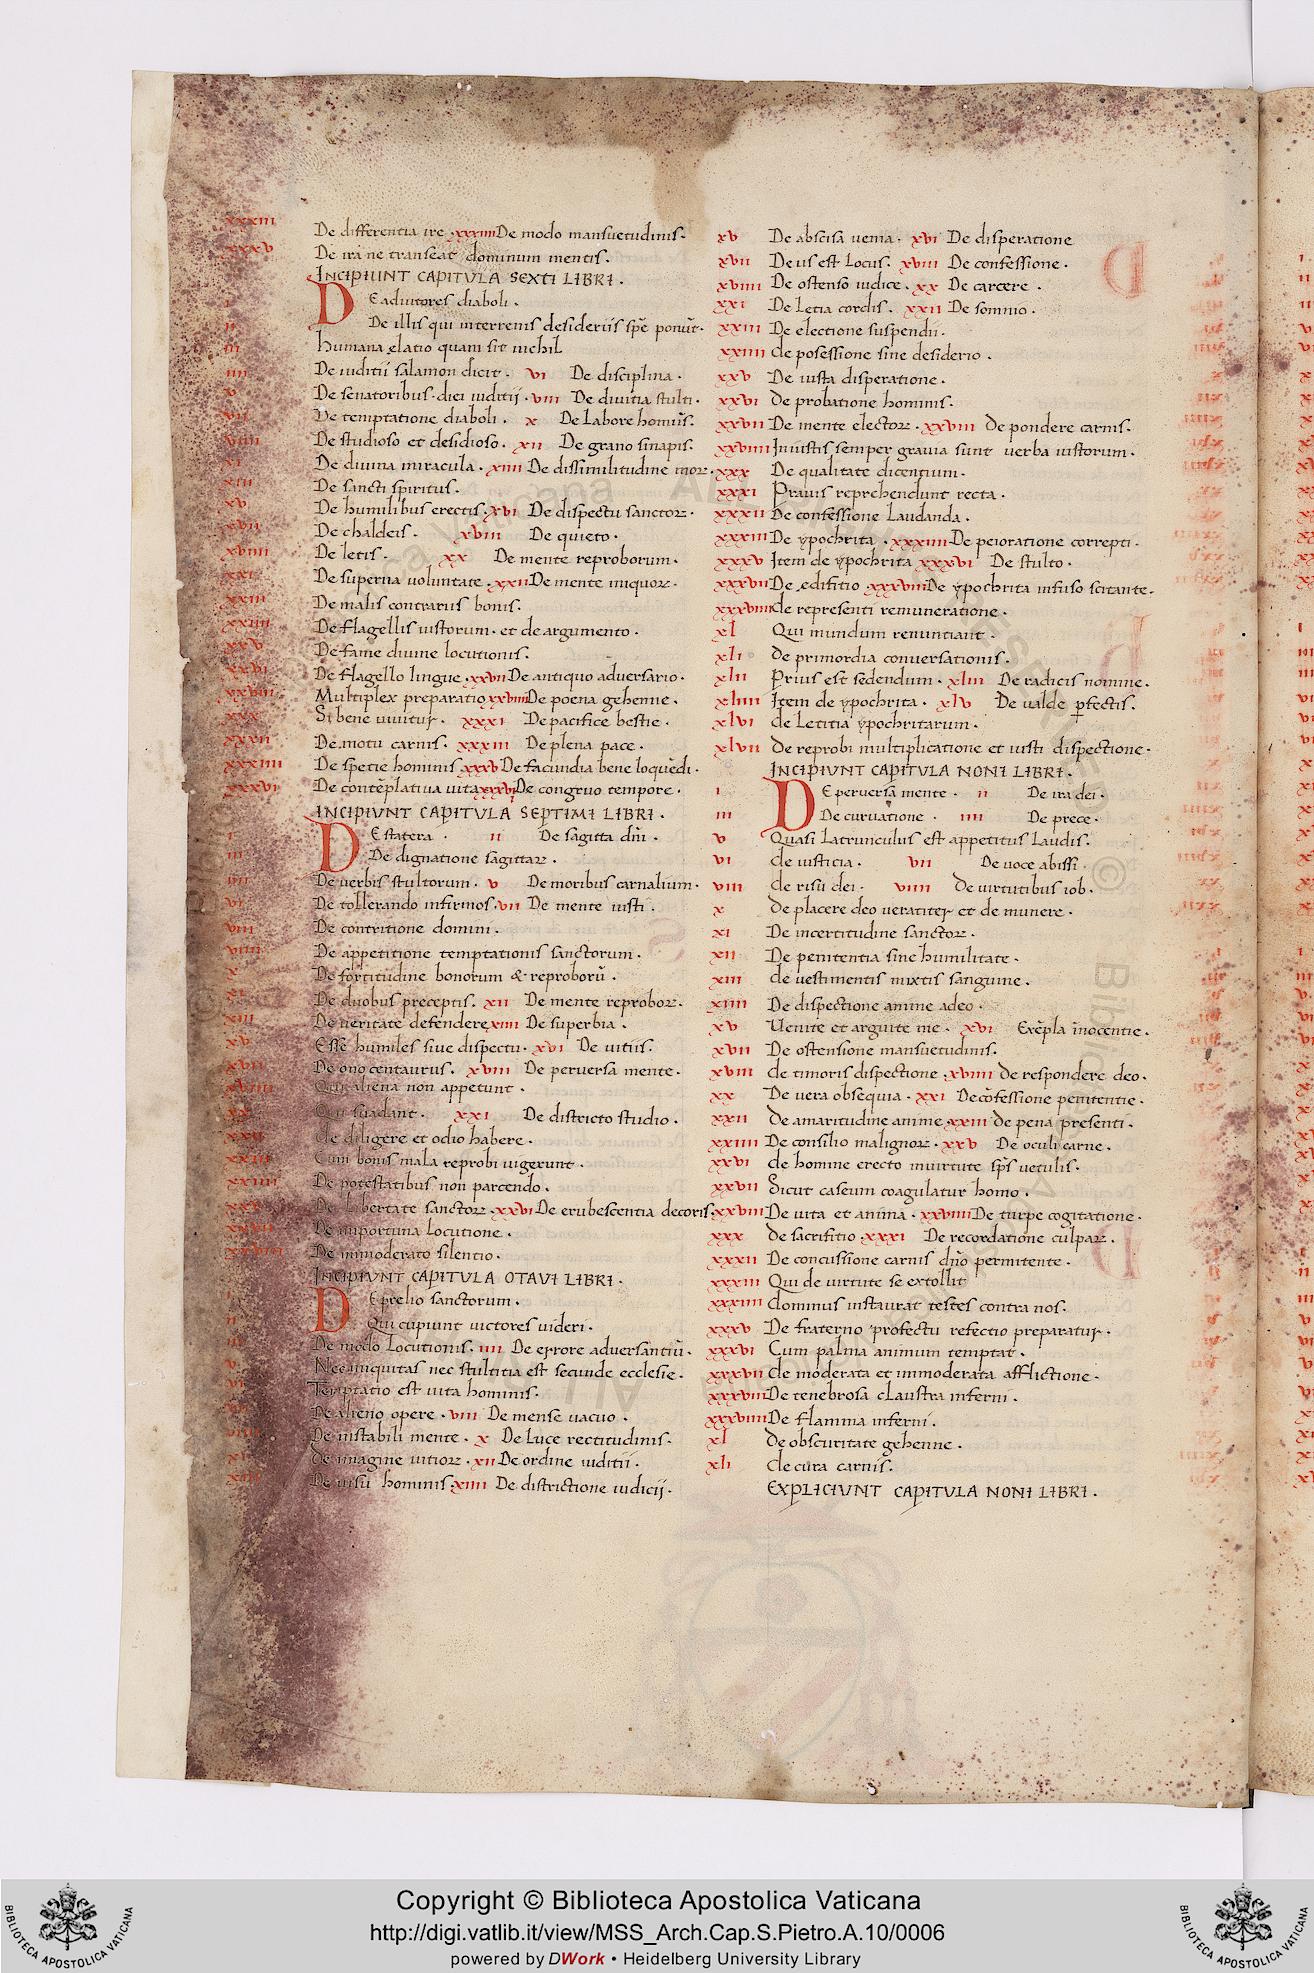 xxxiii De differentia ire · xxxiiii De modo mansuetudinis ·
xxxv De ira ne transeat dominum mentis ·
INCIPIUNT CAPITULA SEXTI LIBRI ·
i De adiutores diaboli ·
ii De illis qui in terrenis desideriis spē ponūt ·
iii humana elatio quam sit nichil
iiii De iuditii salamon dicit · vi De disciplina ·
v De senatoribus · diei iuditij · viii De diuitia stulti ·
vii De temptatione diaboli · x De Labore homīs ·
viiii De studioso et desidioso · xii De grano sinapis ·
xi De diuina miracula · xiiii De dissimilitudine moꝝ ·
xiii De sancti spiritus ·
xv De humilibus erectis · xvi De dispectu sanctoꝝ ·
xvii De chaldeis · xviii De quieto ·
xviiii De letis · xx De mente reproborum ·
xxi De superna uoluntate · xxii De mente iniquoꝝ ·
xxiii De malis contrariis bonis ·
xxiiii De flagellis iustorum · et de argumento ·
xxv De fame diuine locutionis ·
xxvi De flagello lingue · xxvii De antiquo aduersario ·
xxviii Multiplex preparatio xxviiii De poena gehenne ·
xxx Si bene uiuitur · xxxi De pacifice bestie ·
xxxii De motu carnis · xxxiii De plena pace ·
xxxiiii De spetie hominis xxxv De facundia bene loquēdi ·
xxxvi De contēplatiua uita xxxvii De congruo tempore ·
INCIPIUNT CAPITULA SEPTIMI LIBRI ·
i De statera · ii De sagitta dn̄i ·
iii De dignatione sagittaꝝ ·
iiii De uerbis stultorum · v De moribus carnalium ·
vi De tollerando infirmos · vii De mente iusti ·
viii De contritione domini ·
viiii De appetitione temptationis sanctorum ·
x De fortitudine bonorum & reproborū ·
xi De duobus preceptis · xii De mente reproboꝝ ·
xiii De ueritate defendere xiiii De superbia ·
xv Esse humiles siue dispectu · xvi De uitiis ·
xvii De onocentaurus · xviii De peruersa mente ·
xviiii Qui aliena non appetunt ·
xx Qui suadant · xxi De districto studio ·
xxii de diligere et odio habere ·
xxiii Cum bonis mala reprobi uigerunt ·
xxiiii De potestatibus non parcendo ·
xxv De libertate sanctoꝝ · xxvi De erubescentia decoris ·
xxvii De importuna Locutione ·
xxviii De immoderato silentio ·
INCIPIVNT CAPITULA OTAVI LIBRI ·
i De prelio sanctorum ·
ii Qui cupiunt uictores uideri ·
iii De modo Locutionis · iiii De errore aduersantiū ·
v Nec iniquitas nec stultitia est secunde ecclesie ·
vi Temptatio est uita hominis ·
vii De alieno opere · viii De mense uacuo ·
viiii De instabili mente · x De Luce rectitudinis ·
xi de imagine uitioꝝ · xii De ordine iuditii ·
xiii De uisu hominis · xiiii De districtione iudicij ·
xv De abscisa uenia · xvi De disperatione
xvii De us est Locus · xviii De confessione ·
xviiii De ostenso iudice · xx De carcere ·
xxi De Letia cordis · xxii De somnio ·
xxiii De electione suspendii ·
xxiiii de posessione sine desiderio ·
xxv De iusta disperatione ·
xxvi de probatione hominis ·
xxvii De mente electoꝝ · xxviii de pondere carnis ·
xxviiii Iniustis semper grauia sunt uerba iustorum ·
xxx De qualitate dicentium ·
xxxi Prauis reprehendunt recta ·
xxxii De confessione Laudanda ·
xxxiii De ypochrita · xxxiiii De peioratione correpti ·
xxxv Item de ypochrita xxxvi De stulto ·
xxxvii De edifitio xxxviii De ypochrita infuso scitante ·
xxxviiii de representi remuneratione ·
xl Qui mundum renuntiant ·
xli de primordia conuersationis ·
xlii Prius est sedendum · xliii De radicis nomine ·
xliiii Item de ypochrita · xlv De ualde ꝑfectis ·
xlvi de Letitia ypochritarum ·
xlvii de reprobi multiplicatione et iusti dispectione ·
INCIPIVNT CAPITULA NONI LIBRI ·
i De peruersa mente · ii De ira dei ·
iii De curuatione · iiii De prece ·
v Quasi Latrunculus est appetitus Laudis ·
vi de iusticia · vii De uoce abissi ·
viii de risu dei · viiii de uirtutibus iob ·
x de placere deo ueraciter et de munere ·
xi De incertitudine sanctoꝝ ·
xii De penitentia sine humilitate ·
xiii de uestimentis mixtis sanguine ·
xiiii De dispectione anime a deo ·
xv Uenite et arguite me · xvi Exēpla inocentie ·
xvii De ostensione mansuetudinis ·
xviii de timoris dispectione · xviiii de respondere deo ·
xx De uera obsequia · xxi De cōfessione penitentie ·
xxii de amaritudine anime xxiii de pena presenti ·
xxiiii De consilio malignoꝝ · xxv De oculi carne ·
xxvi de homine erecto in uirtute sp̄s uetulis ·
xxvii Sicut caseum coagulatur homo ·
xxviii De uita et anima · xxviiii De turpe cogitatione ·
xxx de sacrifitio · xxxi De recordatione culpaꝝ ·
xxxii De concussione carnis dn̄o permitente ·
xxxiii Qui de uirtute se extollit
xxxiiii dominus instaurat testes contra nos ·
xxxv De fraterno profectu refectio preparatur ·
xxxvi Cum palma animum temptat ·
xxxvii de moderata et immoderata afflictione ·
xxxviii De tenebrosa claustra inferni ·
xxxviiii De flamma inferni ·
xl de obscuritate gehenne ·
xli de cura carnis ·
EXPLICIUNT CAPITULA NONI LIBRI ·
Copyright © Biblioteca Apostolica Vaticana
http://digi.vatlib.it/view/MSS_Arch.Cap.S.Pietro.A.10/0006
powered by DWork • Heidelberg University Library
BIBLIOTECA APOSTOLICA VATICANA
BIBLIOTECA APOSTOLICA VATICANA